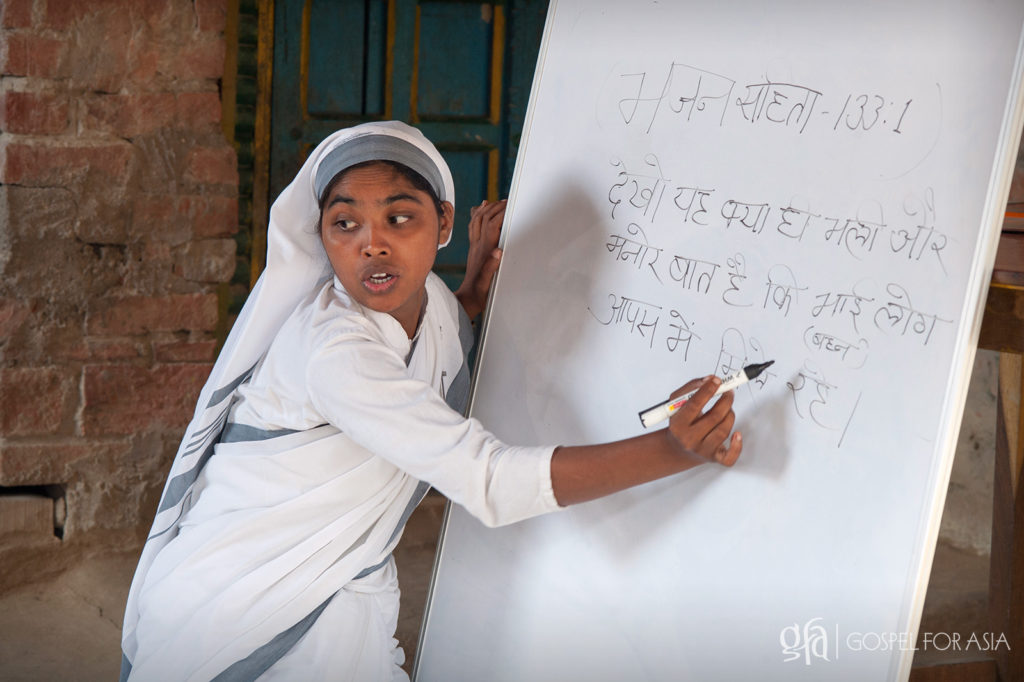 (भजन संहिता - 133:1)
देखो यह क्या ही भली और
मनोर बात है कि भाई लोग
(बहन)
आपस में मिले रहे।
gfa | GOSPEL FOR ASIA